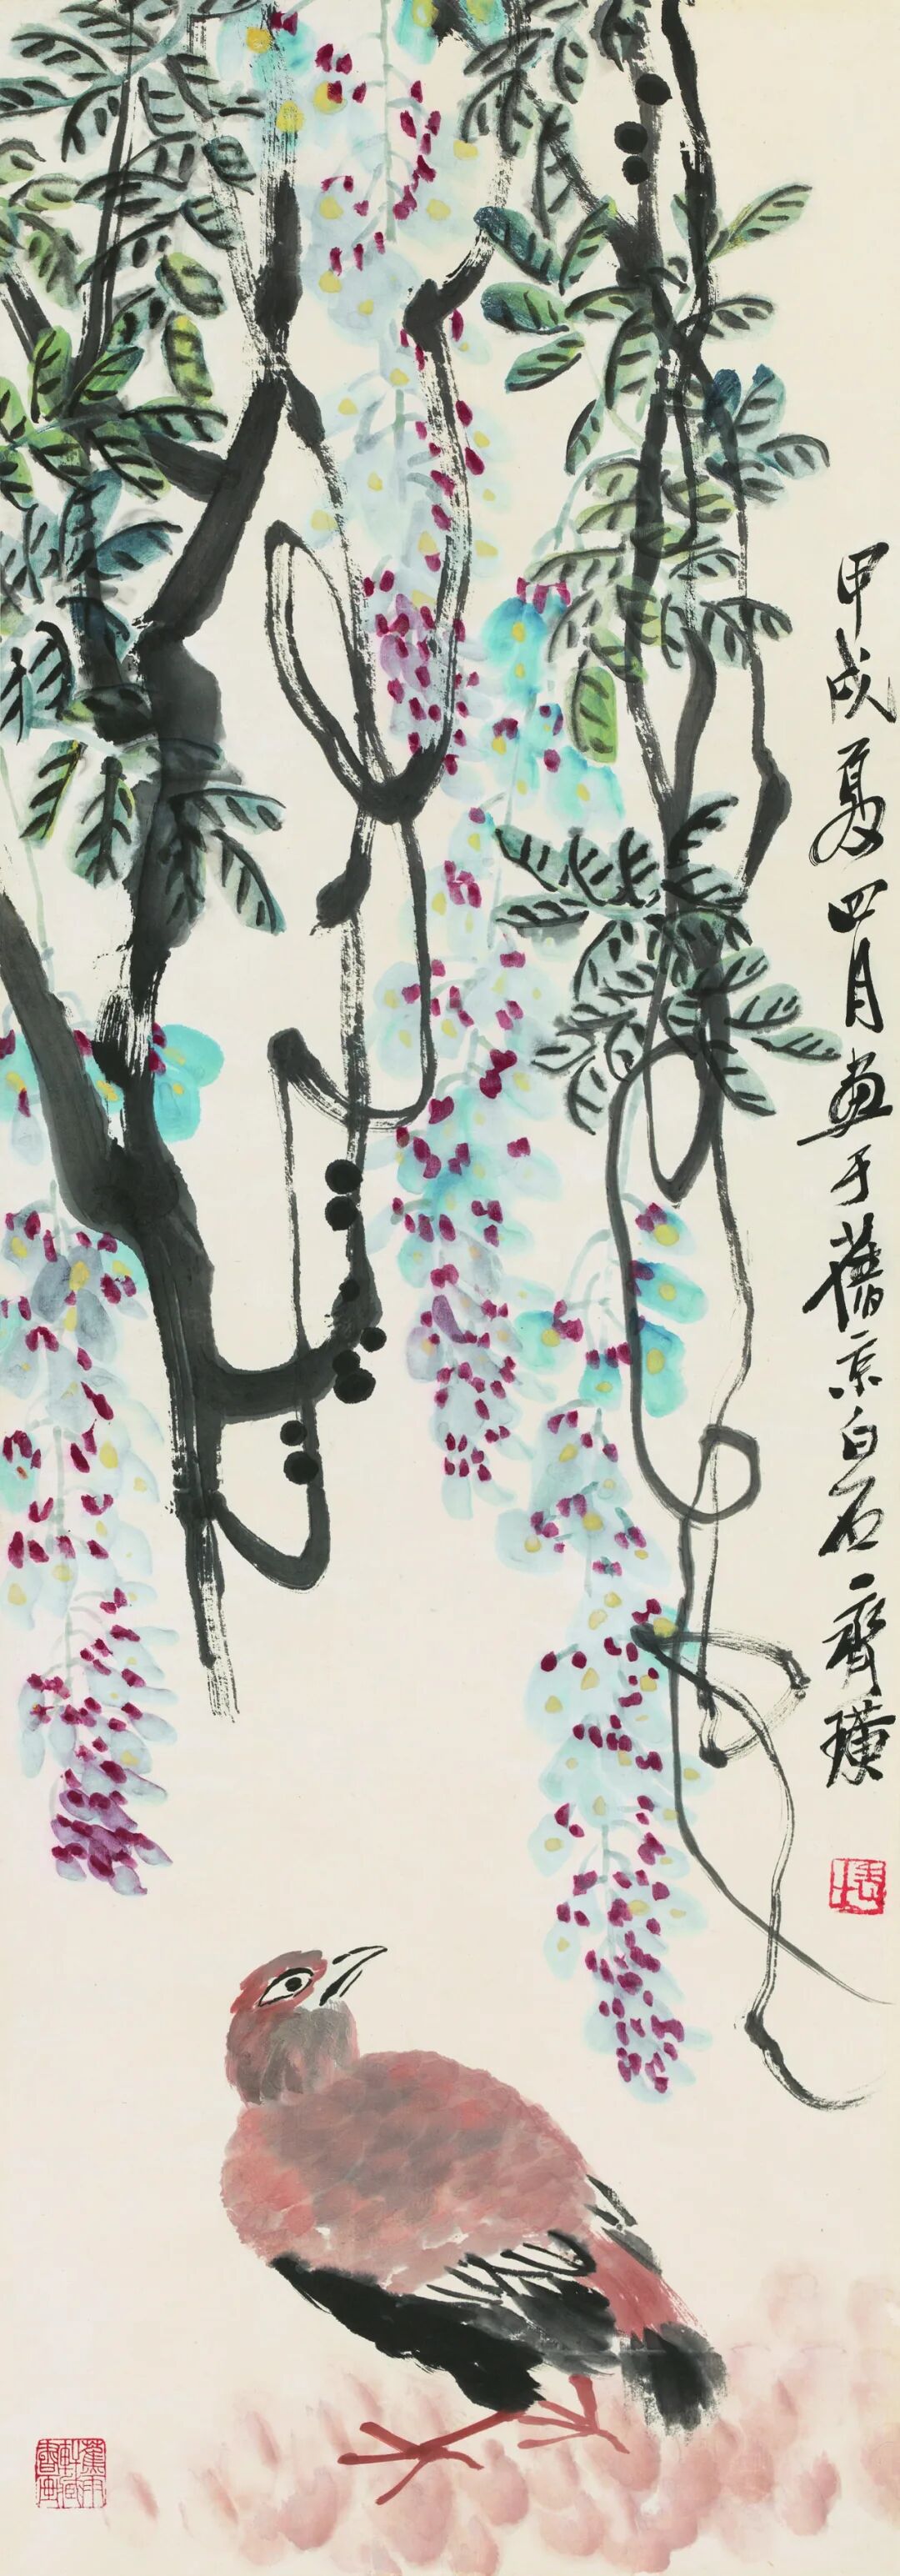 甲戌夏四月畫于舊京白石齊璜